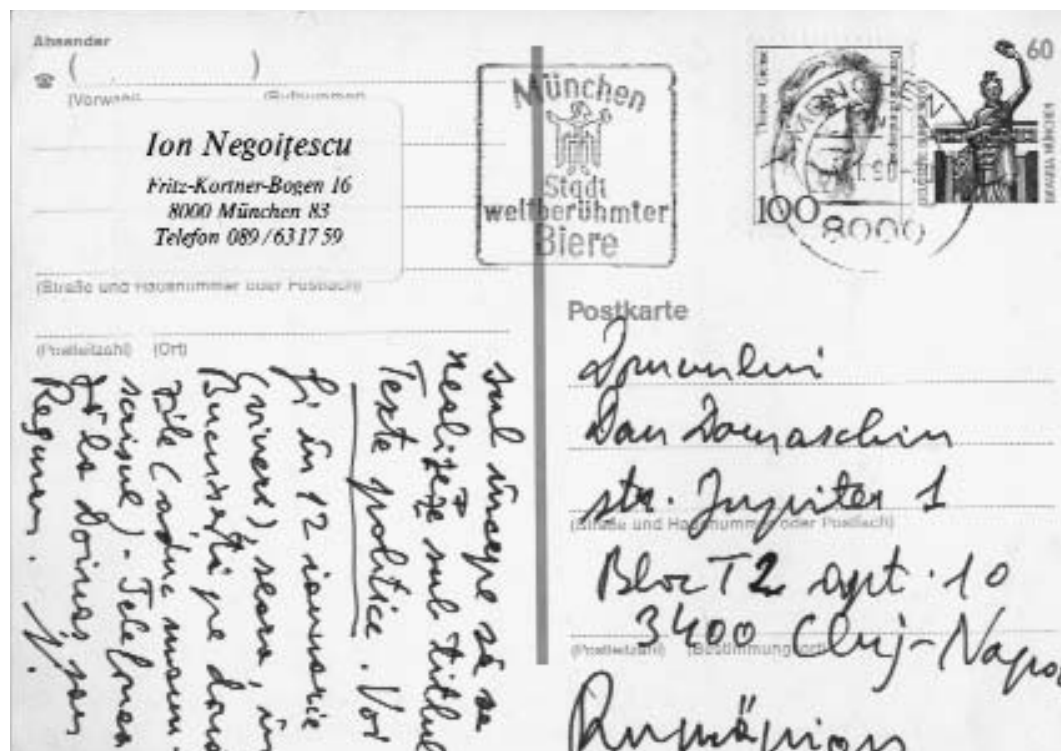 Absender
(Vorwahl) (Rufnummer)
Ion Negoițescu
Fritz-Kortner-Bogen 16
8000 München 83
Telefon 089/631759
(Straße und Hausnummer oder Postfach)
(Postleitzahl) (Ort)
München
Stadt
weltberühmter
Biere
100
8000
60
BAVARIA MÜNCHEN
Postkarte
Domnului
Dan Damaschin
str. Jupiter 1
(Straße und Hausnummer oder Postfach)
Bloc T2 apt. 10
3400 Cluj-Napo
(Postleitzahl) (Bestimmungsort)
Rumänien
începe să se
sub titlul
Texte politice. Voi
fi în 12 ianuarie
(vineri), seara, în
București pe două
zile (aduc manu-
scrisul). Telefonea
la Doinaș sau
Regman.